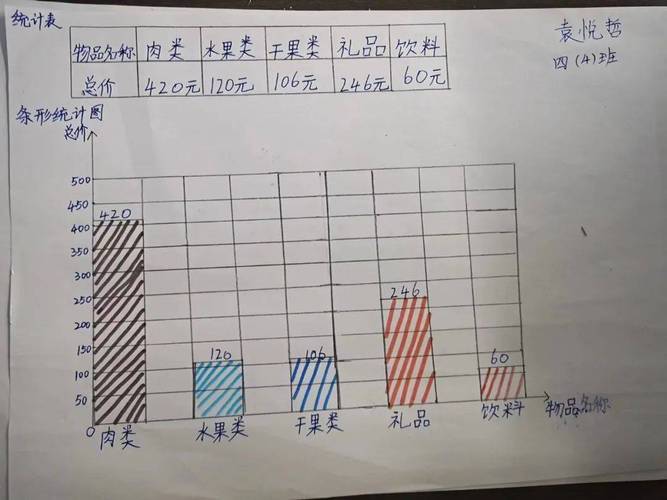 统计表
袁悦哲
四(4)班
物品名称 肉类 水果类 干果类 礼品 饮料
总价 420元 120元 106元 246元 60元
条形统计图
总价
500
450
400
350
300
250
200
150
100
50
0
420
120
106
246
60
肉类 水果类 干果类 礼品 饮料 物品名称